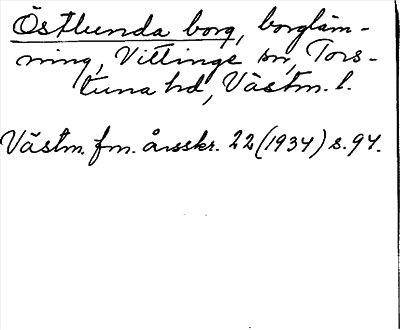 Östlunda borg, borgläm-
ning, Villinge sn, Tors-
tuna hd, Västm. l.
Västm. fm. årsskr. 22 (1934) s. 94.